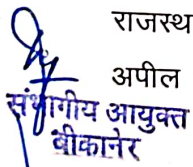 राजस्थ
अपील
संभागीय आयुक्त
बीकानेर